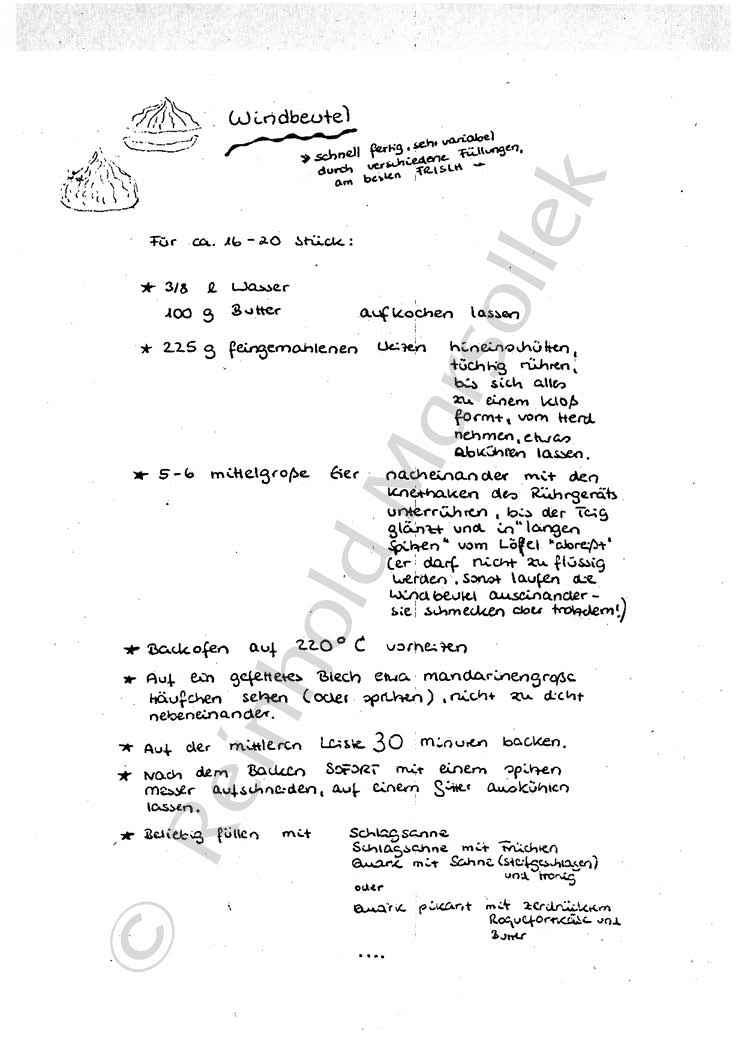 Windbeutel
→ schnell fertig, sehr variabel
durch verschiedene Füllungen,
am besten FRISCH –
Für ca. 16-20 Stück:
★ 3/8 l Wasser
100 g Butter aufkochen lassen
★ 225 g feingemahlenen Weizen hineinschütten,
tüchtig rühren,
bis sich alles
zu einem Kloß
formt, vom Herd
nehmen, etwas
abkühlen lassen.
★ 5-6 mittelgroße Eier nacheinander mit den
Knethaken des Rührgeräts
unterrühren, bis der Teig
glänzt und in "langen
Spitzen" vom Löffel "abreißt"
(er darf nicht zu flüssig
werden, sonst laufen die
Windbeutel auseinander -
sie schmecken aber trotzdem!)
★ Backofen auf 220° C vorheizen
★ Auf ein gefettetes Blech etwa mandarinengroße
Häufchen setzen (oder spritzen), nicht zu dicht
nebeneinander.
★ Auf der mittleren Leiste 30 minuten backen.
★ Nach dem Backen SOFORT mit einem spitzen
messer aufschneiden, auf einem Gitter auskühlen
lassen.
★ Beliebig füllen mit Schlagsahne
Schlagsahne mit Früchten
Quark mit Sahne (steifgeschlagen)
und Honig
oder
Quark pikant mit zerdrücktem
Roquefortkäse und
Butter
....
© Reinhold Marsollek